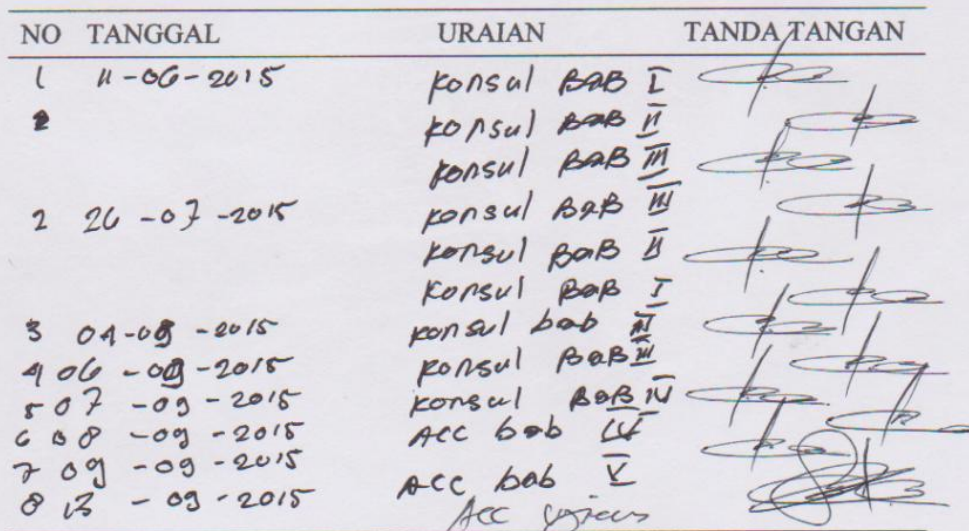 NO TANGGAL URAIAN TANDA TANGAN
1 11-06-2015 Konsul BAB I
2 Konsul BAB II
Konsul BAB III
2 26-07-2015 Konsul BAB III
Konsul BAB II
Konsul BAB I
3 04-09-2015 Konsul bab III
4 06-09-2015 Konsul BAB III
5 07-09-2015 Konsul BAB IV
6 08-09-2015 ACC bab IV
7 09-09-2015 ACC bab V
8 13-09-2015 Acc